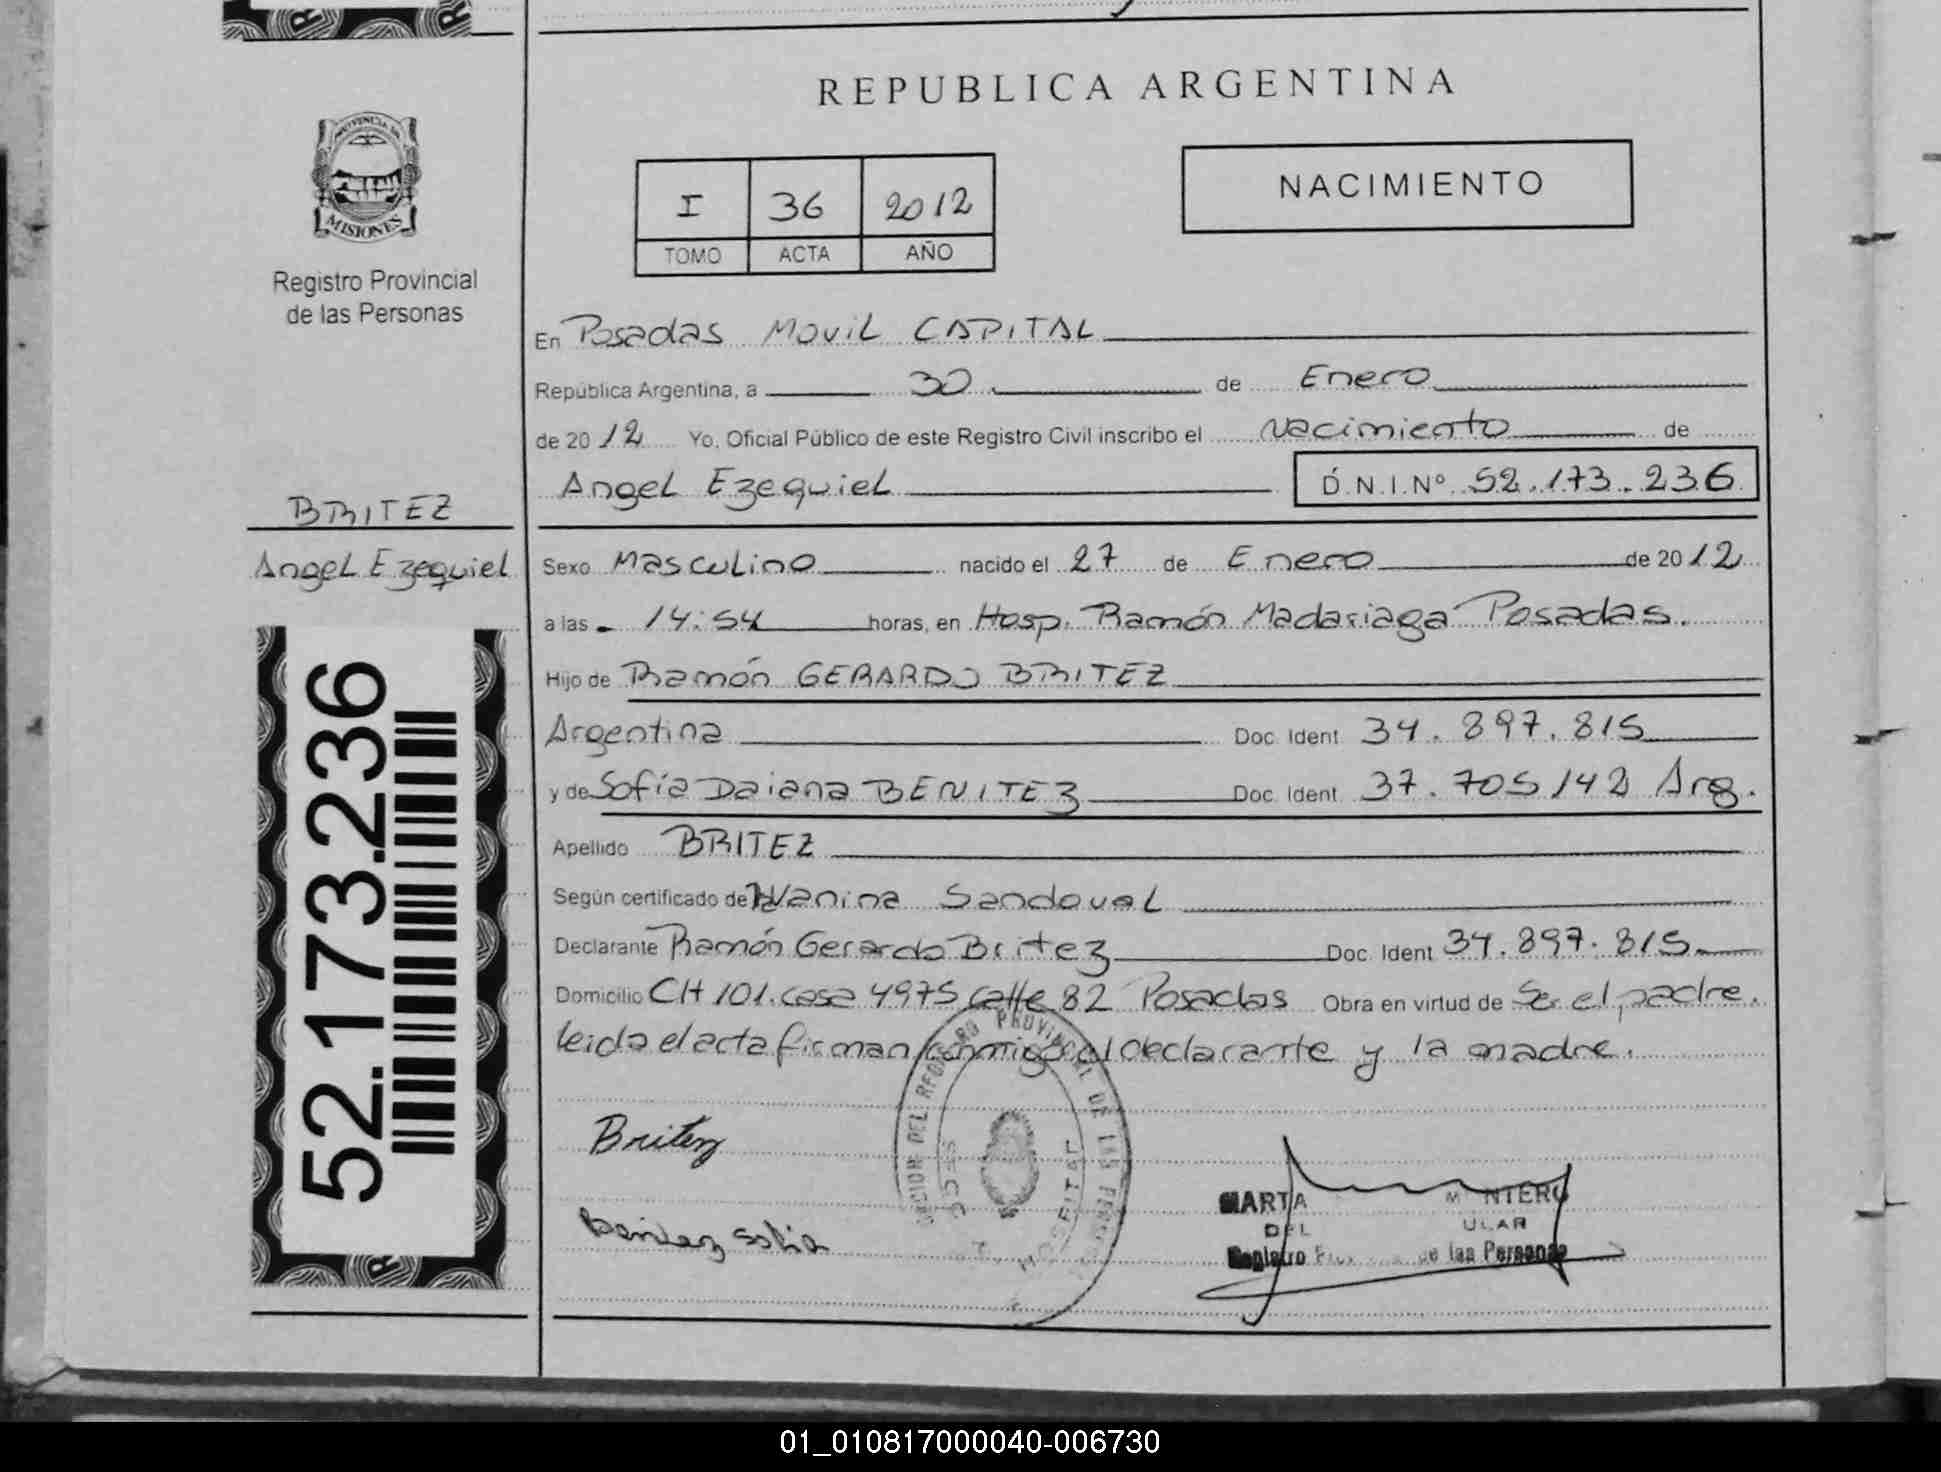 REPUBLICA ARGENTINA
PROVINCIA DE
MISIONES
Registro Provincial
de las Personas
I 36 2012
TOMO ACTA AÑO
NACIMIENTO
BRITEZ
Angel Ezequiel
52.173.236
En Posadas Movil CAPITAL
República Argentina, a 30 de Enero
de 2012 Yo, Oficial Público de este Registro Civil inscribo el Nacimiento de
Angel Ezequiel D.N.I.Nº 52.173.236
Sexo Masculino nacido el 27 de Enero de 2012
a las 14:54 horas, en Hosp. Ramón Madariaga Posadas.
Hijo de Ramón GERARDO BRITEZ
Argentina Doc. Ident 34.897.815
y de Sofía Daiana BENITEZ Doc. Ident 37.705142 Arg.
Apellido BRITEZ
Según certificado de Wanina Sandoval
Declarante Ramón Gerardo Britez Doc. Ident 34.897.815
Domicilio CH 101. casa 4975 calle 82 Posadas Obra en virtud de Ser el padre.
leida el acta firman conmigo el declarante y la madre.
Britez
Benitez Sofia
PROVINCIAL DE LAS
HOSPITAL
MARTA
Registro de las Personas
01_010817000040-006730